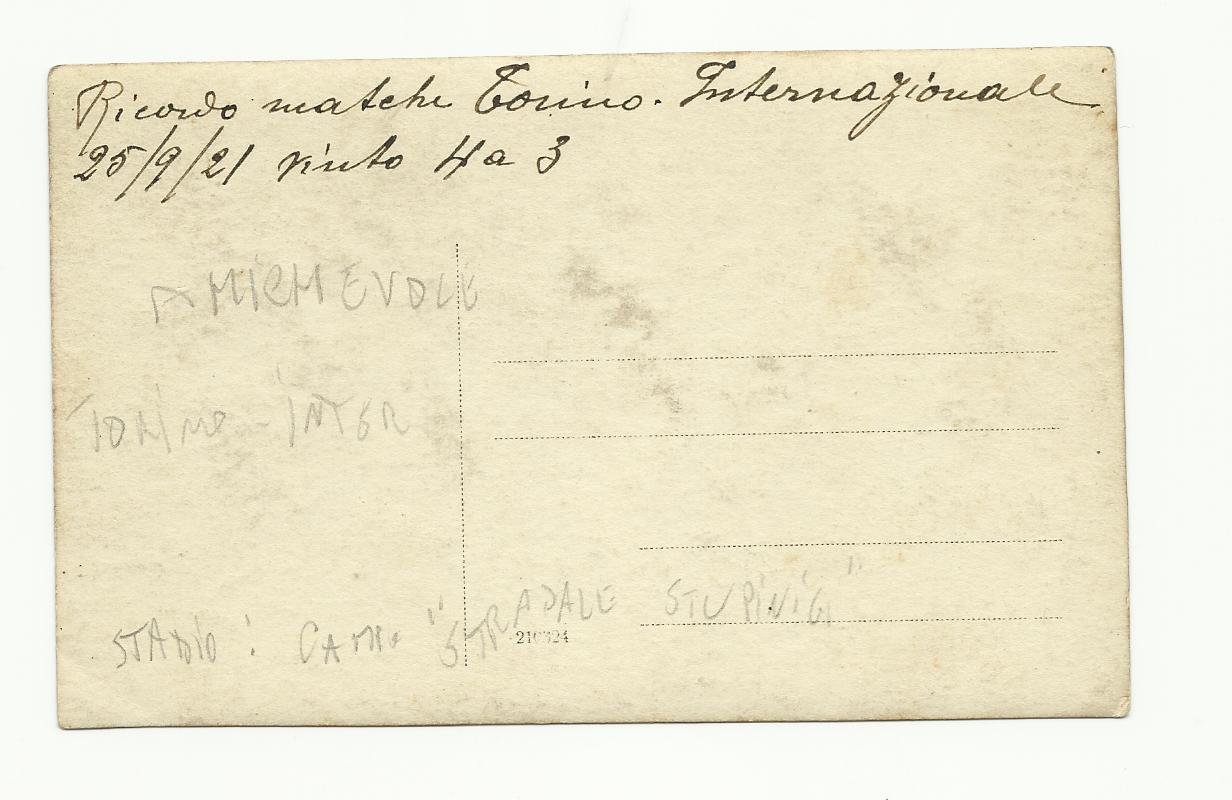 Ricordo matche Torino. Internazionale
25/9/21 vinto 4 a 3
AMICHEVOLE
TORINO - INTER
STADIO: CAMPO "STRADALE STUPINIGI"